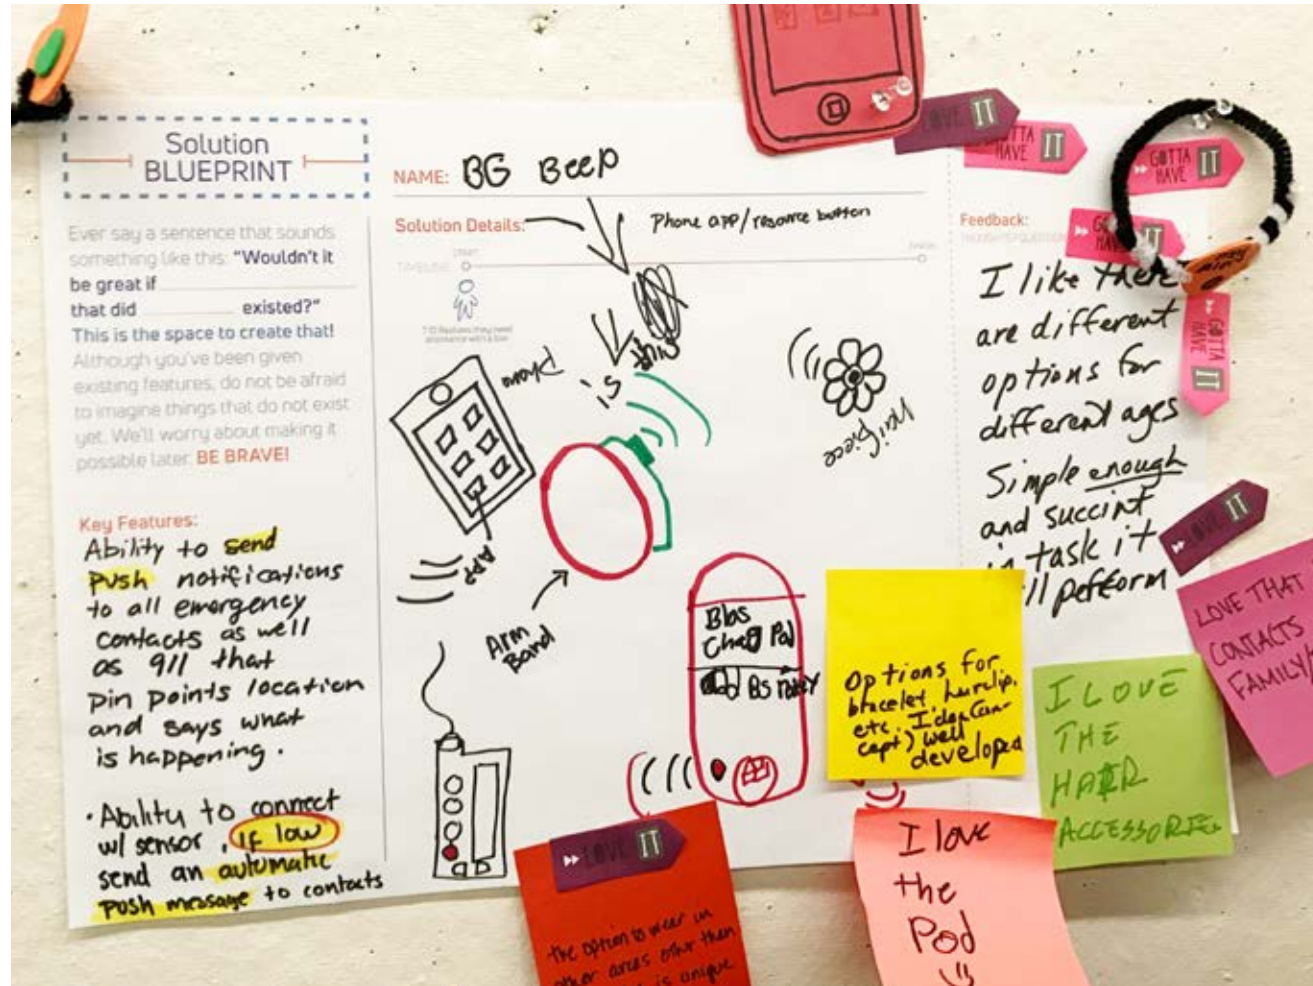 Solution
BLUEPRINT
Ever say a sentence that sounds
something like this: "Wouldn't it
be great if
that did existed?"
This is the space to create that!
Although you've been given
existing features, do not be afraid
to imagine things that do not exist
yet. We'll worry about making it
possible later. BE BRAVE!
Key Features:
Ability to send
push notifications
to all emergency
contacts as well
as 911 that
pin points location
and says what
is happening.
• Ability to connect
w/ sensor. If low
send an automatic
push message to contacts
NAME: BG Beep
Solution Details:
Phone app/resource button
TIMELINE:
START
FINISH
is
phone
APP
Arm
Band
hairpiece
Pod
Feedback:
I like there
are different
options for
different ages
Simple enough
and succint
in task it
perform
LOVE IT
GOTTA HAVE IT
GOTTA
HAVE IT
GOTTA
HAVE IT
LOVE IT
Options for
bracelet,
etc. Idea (con-
cept) well
developed
I LOVE
THE
HAIR
ACCESSORIES
LOVE THAT
CONTACTS
FAMILY/
LOVE IT
the option to wear in
other areas other than
is unique
I love
the
Pod